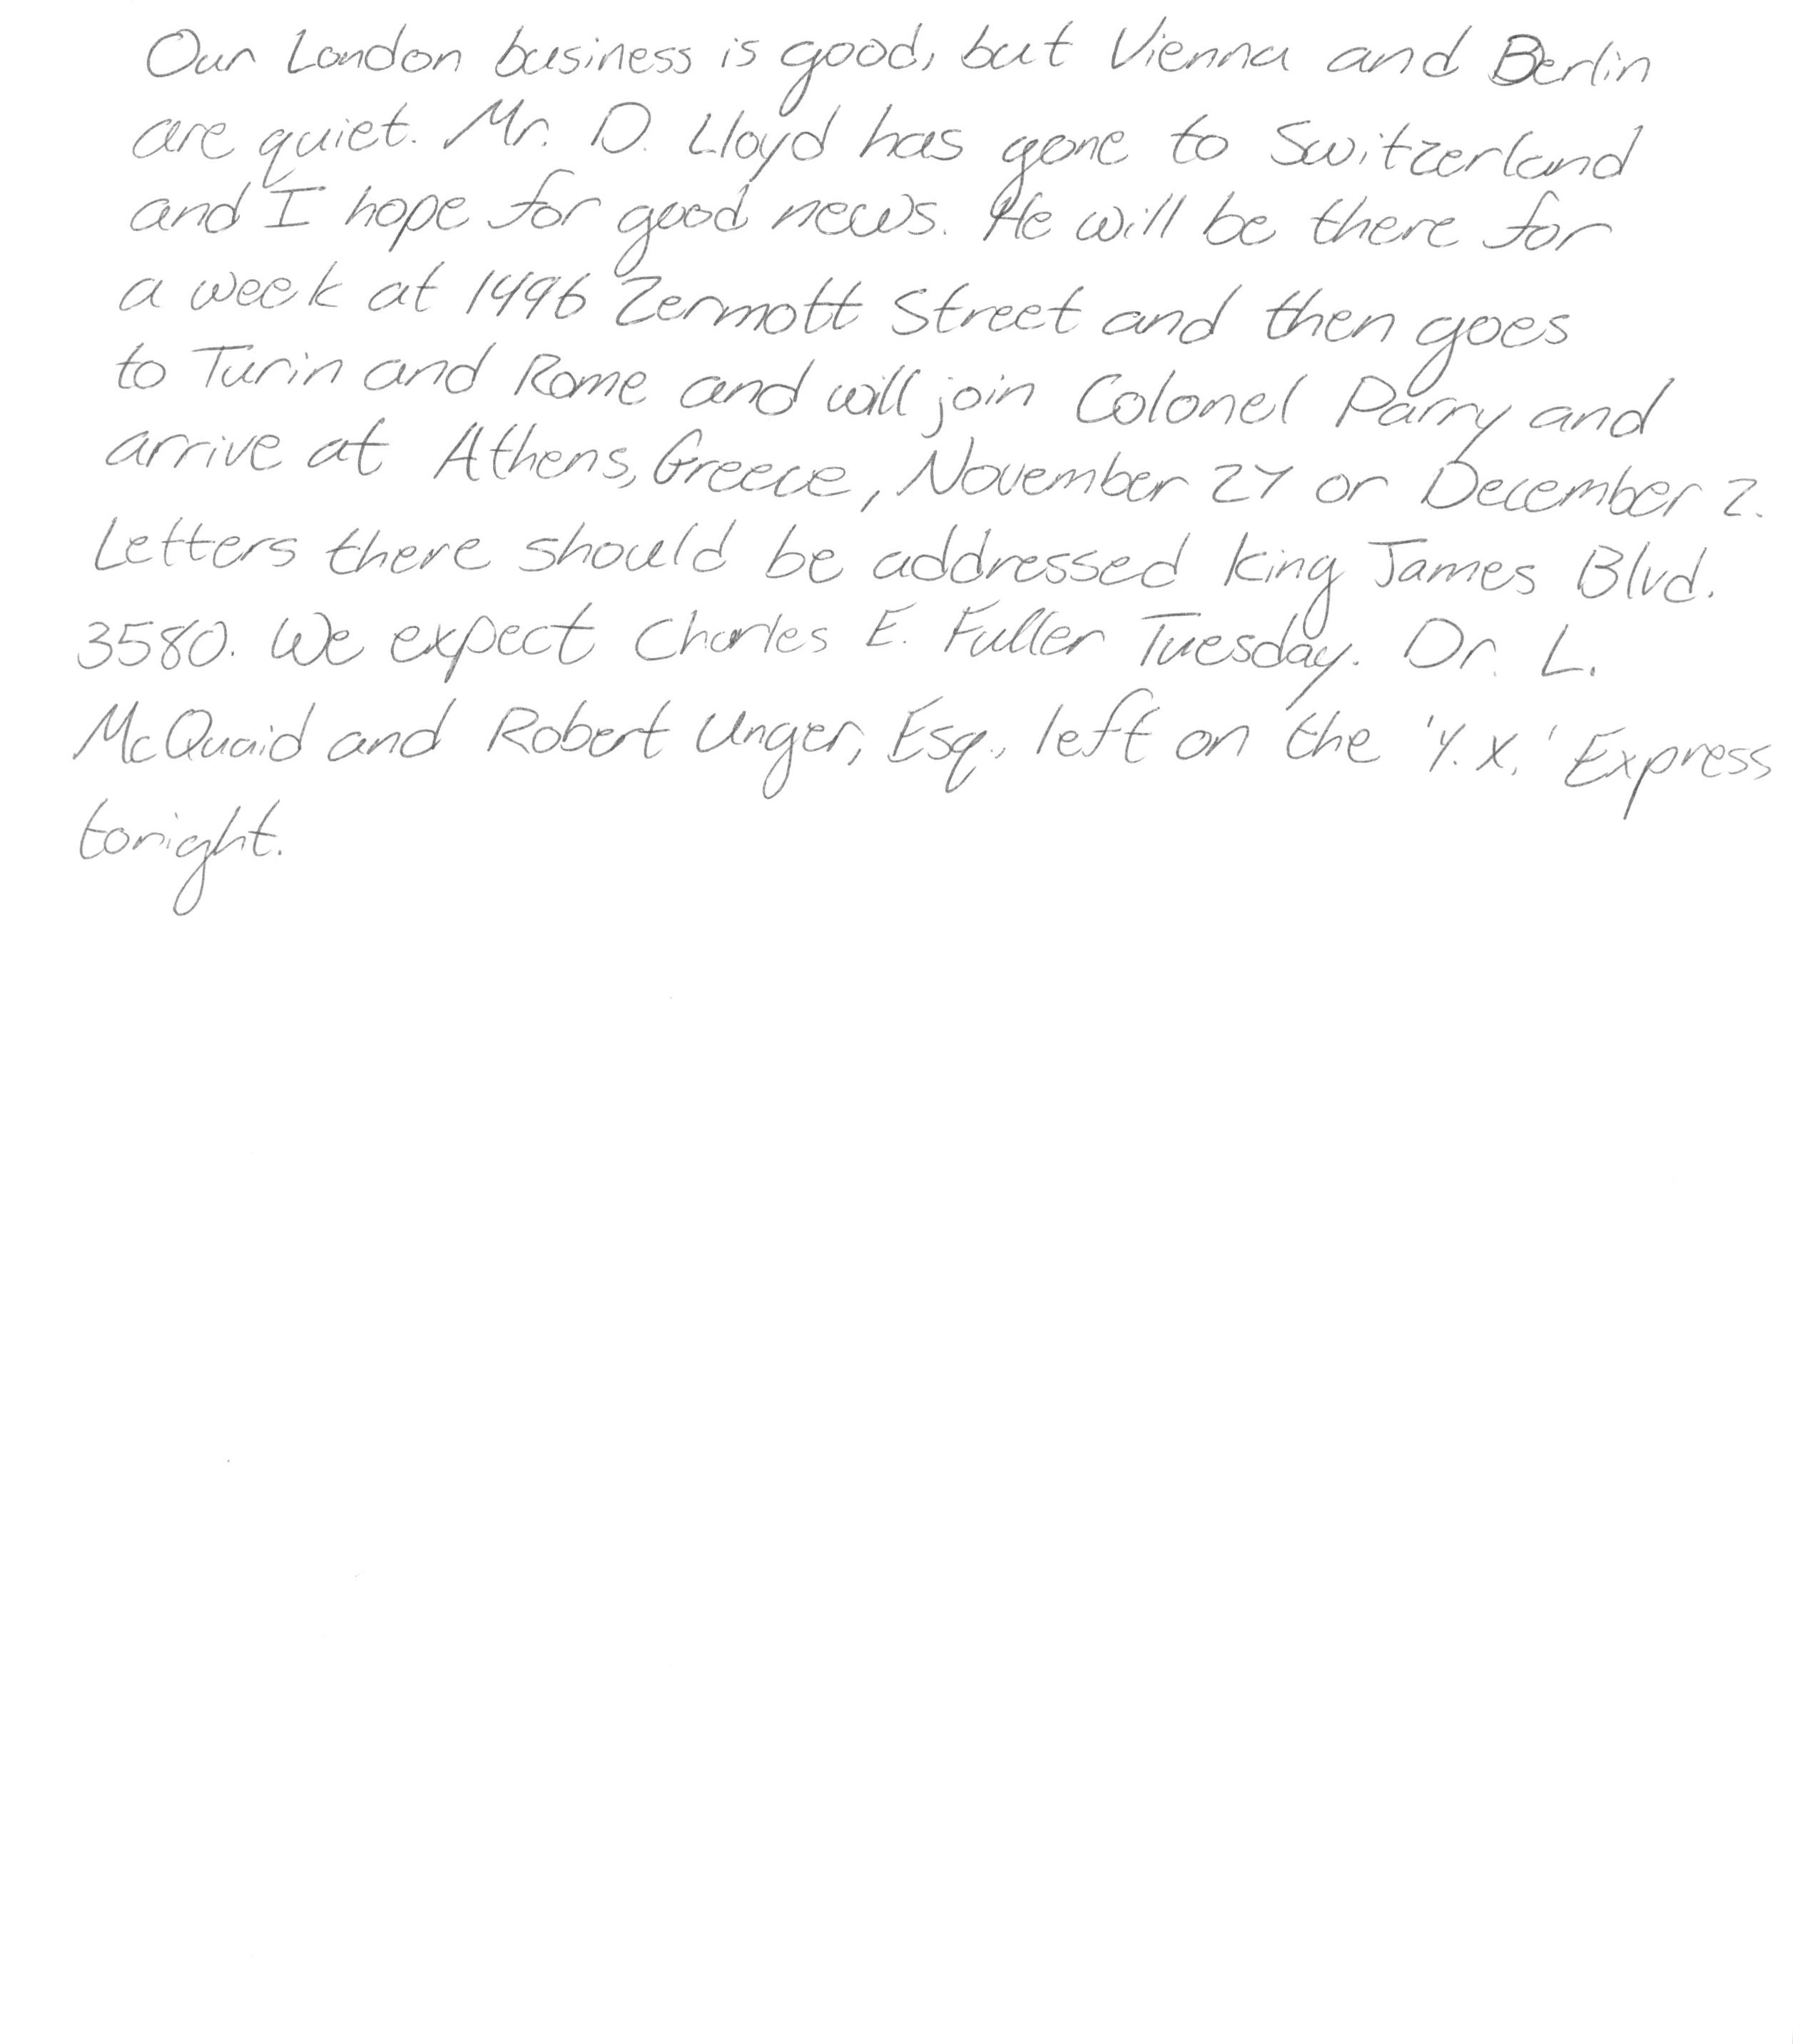 Our London business is good, but Vienna and Berlin
are quiet. Mr. D. Lloyd has gone to Switzerland
and I hope for good news. He will be there for
a week at 1496 Zermott Street and then goes
to Turin and Rome and will join Colonel Parry and
arrive at Athens, Greece, November 27 or December 2.
Letters there should be addressed King James Blvd.
3580. We expect Charles E. Fuller Tuesday. Dr. L.
McQuaid and Robert Unger, Esq., left on the 'Y.X.' Express
tonight.